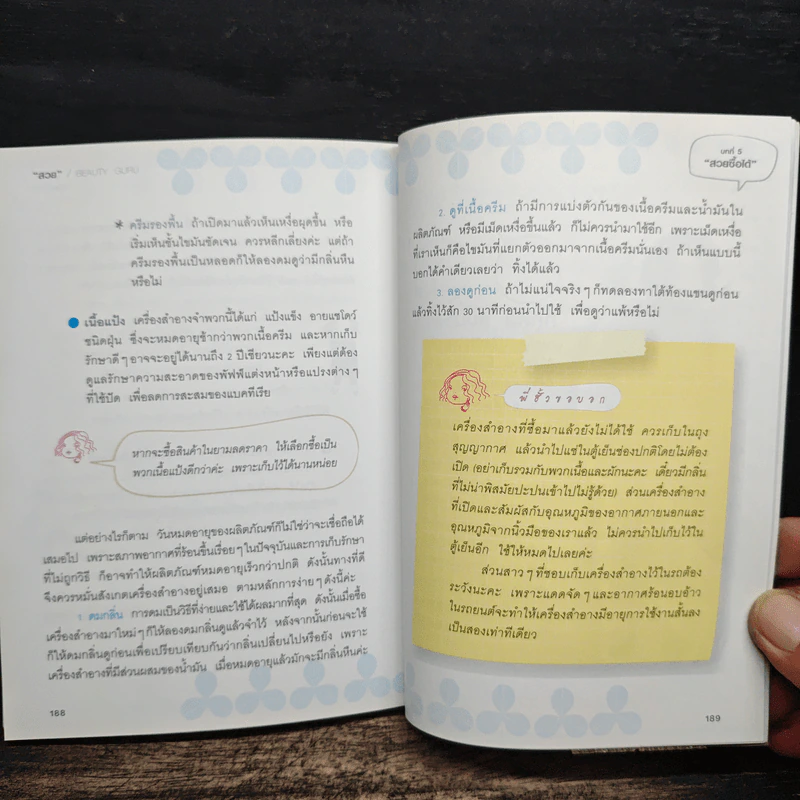 "สวย" / BEAUTY GURU
* ครีมรองพื้น ถ้าเปิดมาแล้วเห็นเหงื่อผุดขึ้น หรือ
เริ่มเห็นชั้นไขมันชัดเจน ควรหลีกเลี่ยงค่ะ แต่ถ้า
ครีมรองพื้นเป็นหลอดก็ให้ลองดมดูว่ามีกลิ่นหืน
หรือไม่
● เนื้อแป้ง เครื่องสำอางจำพวกนี้ได้แก่ แป้งแข็ง อายแชโดว์
ชนิดฝุ่น ซึ่งจะหมดอายุช้ากว่าพวกเนื้อครีม และหากเก็บ
รักษาดีๆ อาจจะอยู่ได้นานถึง 2 ปีเชียวนะคะ เพียงแต่ต้อง
ดูแลรักษาความสะอาดของพัฟพีแต่งหน้าหรือแปรงต่างๆ
ที่ใช้ปัด เพื่อลดการสะสมของแบคทีเรีย
หากจะซื้อสินค้าในยามลดราคา ให้เลือกซื้อเป็น
พวกเนื้อแป้งดีกว่าค่ะ เพราะเก็บไว้ได้นานหน่อย
แต่อย่างไรก็ตาม วันหมดอายุของผลิตภัณฑ์ก็ไม่ใช่ว่าจะเชื่อถือได้
เสมอไป เพราะสภาพอากาศที่ร้อนขึ้นเรื่อยๆ ในปัจจุบันและการเก็บรักษา
ที่ไม่ถูกวิธี ก็อาจทำให้ผลิตภัณฑ์หมดอายุเร็วกว่าปกติ ดังนั้นทางที่ดี
จึงควรหมั่นสังเกตเครื่องสำอางอยู่เสมอ ตามหลักการง่ายๆ ดังนี้ค่ะ
1. ดมกลิ่น การดมเป็นวิธีที่ง่ายและใช้ได้ผลมากที่สุด ดังนั้นเมื่อซื้อ
เครื่องสำอางมาใหม่ๆ ก็ให้ลองดมกลิ่นดูแล้วจำไว้ หลังจากนั้นก่อนจะใช้
ก็ให้ดมกลิ่นดูก่อนเพื่อเปรียบเทียบกันว่ากลิ่นเปลี่ยนไปหรือยัง เพราะ
เครื่องสำอางที่มีส่วนผสมของน้ำมัน เมื่อหมดอายุแล้วมักจะมีกลิ่นหืนค่ะ
188
บทที่ 5
"สวยซื้อได้"
2. ดูที่เนื้อครีม ถ้ามีการแบ่งตัวกันของเนื้อครีมและน้ำมันใน
ผลิตภัณฑ์ หรือมีเม็ดเหงื่อขึ้นแล้ว ก็ไม่ควรนำมาใช้อีก เพราะเม็ดเหงื่อ
ที่เราเห็นก็คือไขมันที่แยกตัวออกมาจากเนื้อครีมนั่นเอง ถ้าเห็นแบบนี้
บอกได้คำเดียวเลยว่า ทิ้งได้แล้ว
3. ลองดูก่อน ถ้าไม่แน่ใจจริงๆ ก็ทดลองทาใต้ท้องแขนดูก่อน
แล้วทิ้งไว้สัก 30 นาทีก่อนนำไปใช้ เพื่อดูว่าแพ้หรือไม่
พี่ฮั้วขอบอก
เครื่องสำอางที่ซื้อมาแล้วยังไม่ได้ใช้ ควรเก็บในถุง
สุญญากาศ แล้วนำไปแช่ในตู้เย็นช่องปกติโดยไม่ต้อง
เปิด (อย่าเก็บรวมกับพวกเนื้อและผักนะคะ เดี๋ยวมีกลิ่น
ที่ไม่น่าพิสมัยปะปนเข้าไปไม่รู้ด้วย) ส่วนเครื่องสำอาง
ที่เปิดและสัมผัสกับอุณหภูมิของอากาศภายนอกและ
อุณหภูมิจากนิ้วมือของเราแล้ว ไม่ควรนำไปเก็บไว้ใน
ตู้เย็นอีก ใช้ให้หมดไปเลยค่ะ
ส่วนสาวๆ ที่ชอบเก็บเครื่องสำอางไว้ในรถต้อง
ระวังนะคะ เพราะแดดจัดๆ และอากาศร้อนอบอ้าว
ในรถยนต์จะทำให้เครื่องสำอางมีอายุการใช้งานสั้นลง
เป็นสองเท่าทีเดียว
189